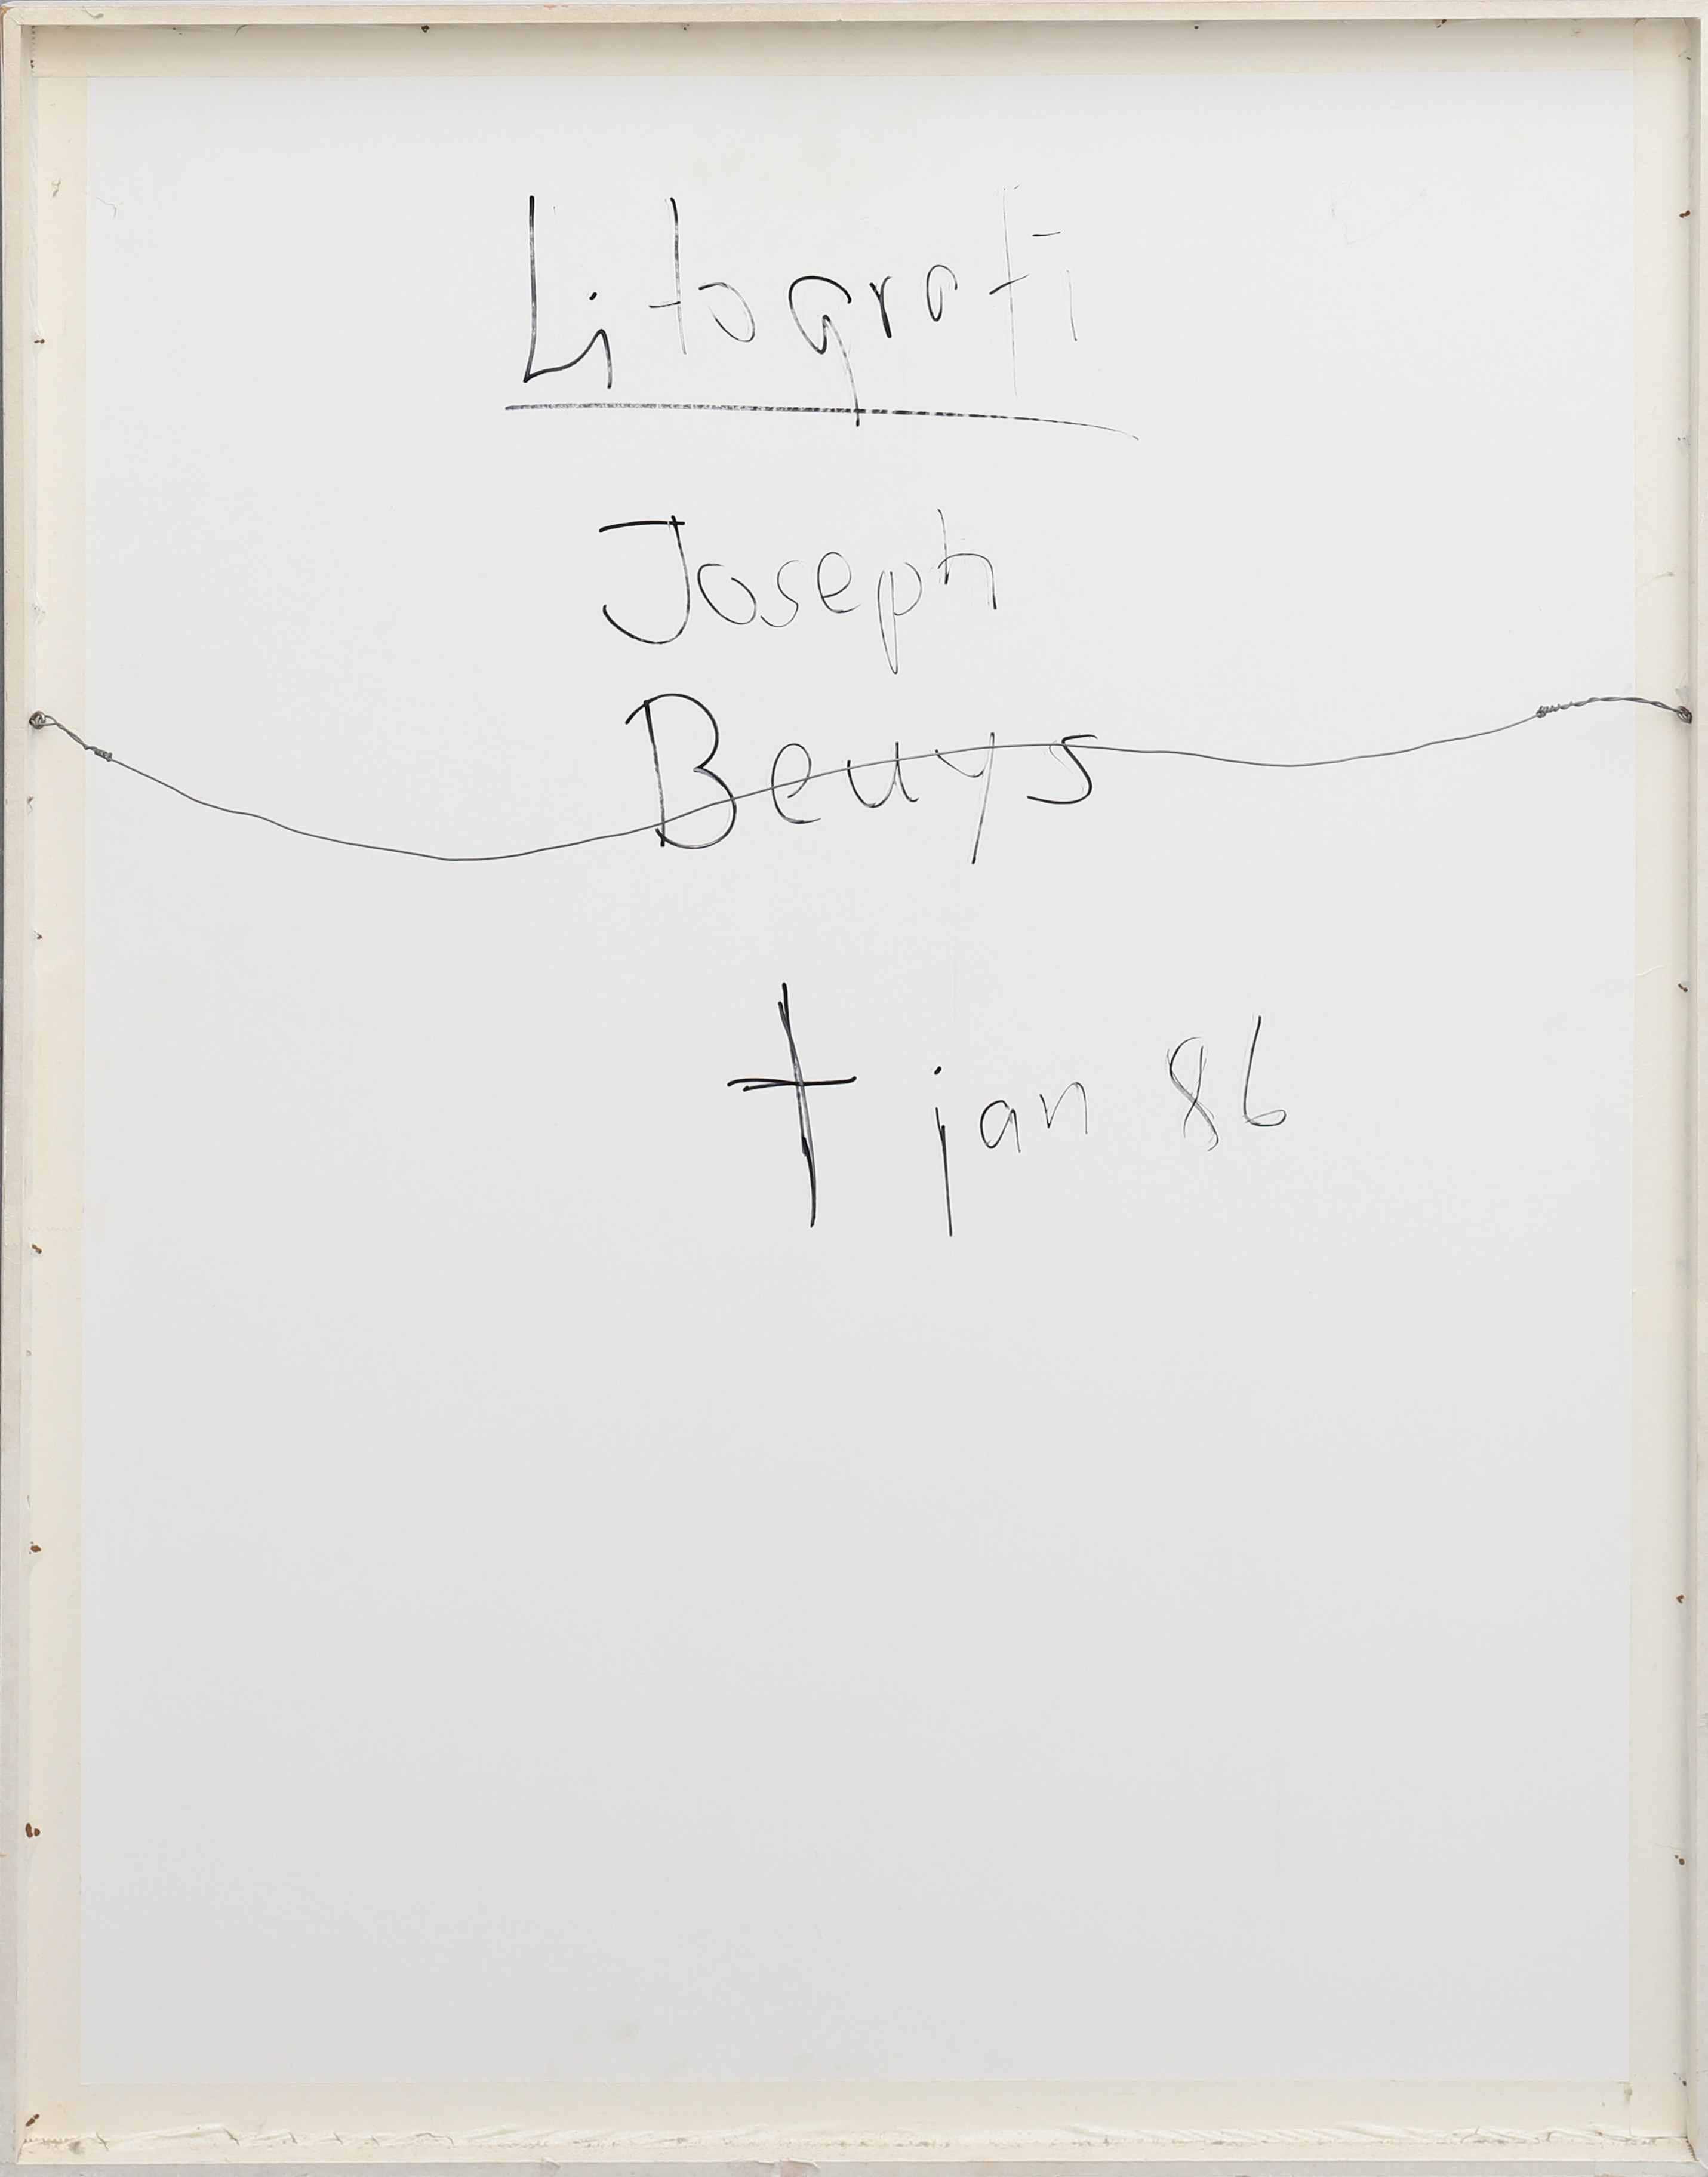 Litografi
Joseph
Beuys
† jan 86